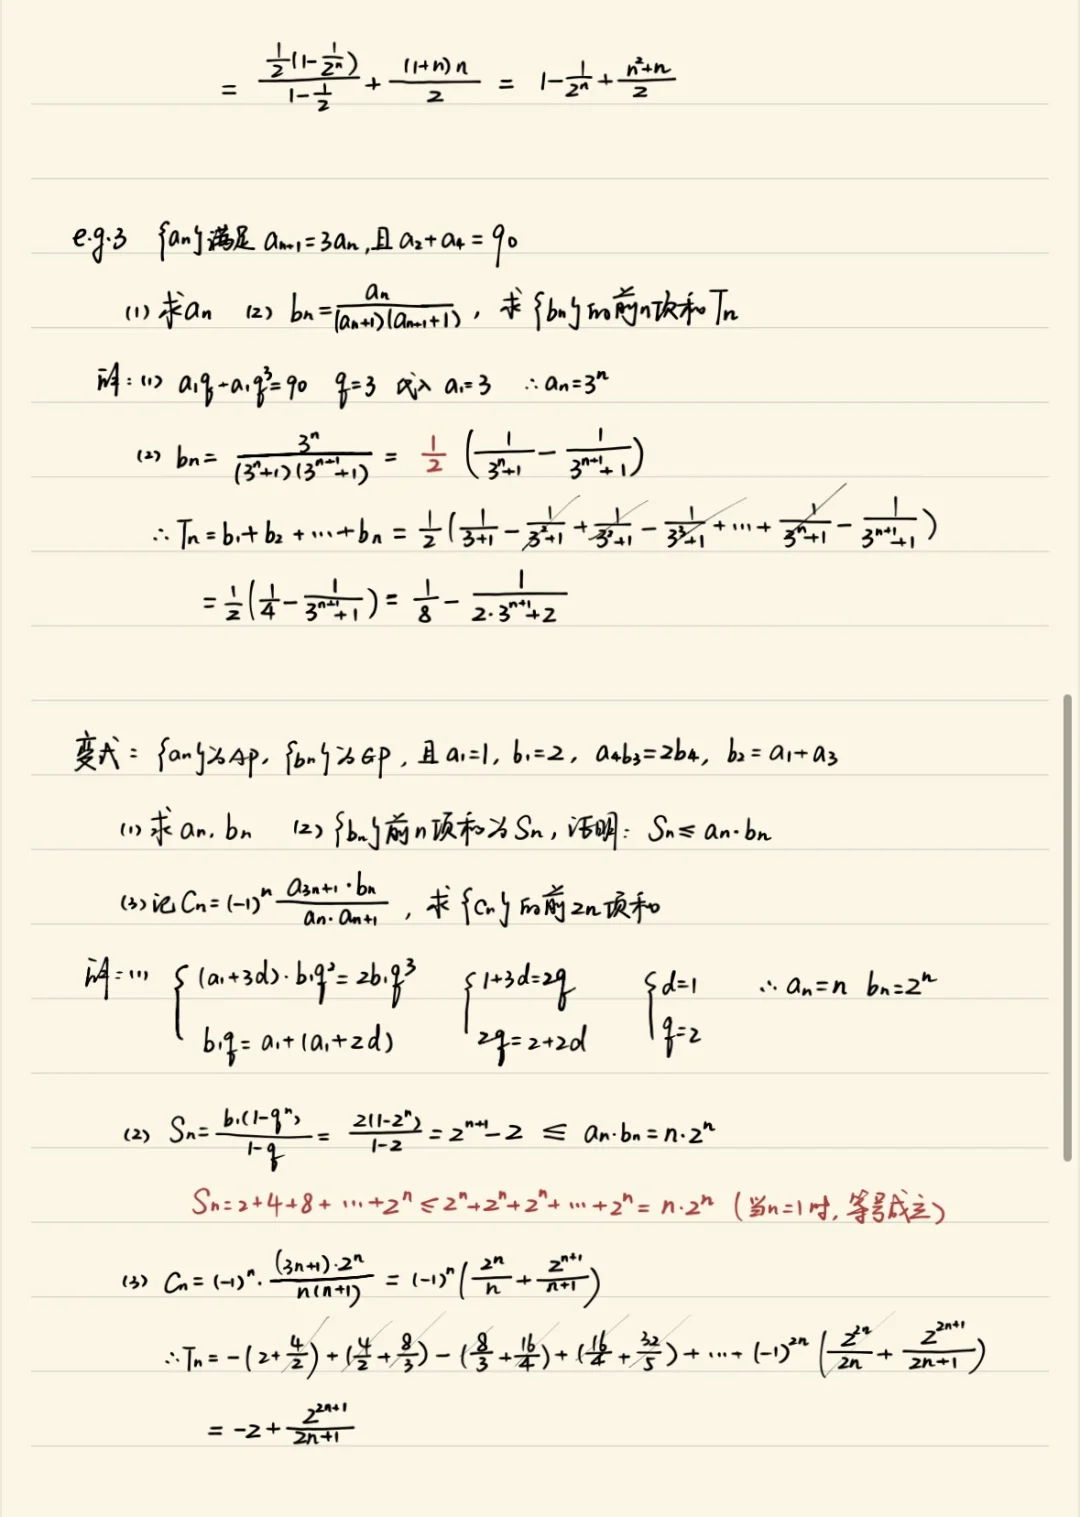 = \frac{\frac{1}{2}(1-\frac{1}{2^n})}{1-\frac{1}{2}} + \frac{(1+n)n}{2} = 1-\frac{1}{2^n}+\frac{n^2+n}{2}
e.g.3 {an}满足 a_{n+1}=3a_n,且 a_2+a_4=90
(1) 求a_n (2) b_n=\frac{a_n}{(a_n+1)(a_{n+1}+1)}, 求{b_n}的前n项和T_n
解:(1) a_1q+a_1q^3=90 q=3 代入 a_1=3 ∴a_n=3^n
(2) b_n=\frac{3^n}{(3^n+1)(3^{n+1}+1)} = \frac{1}{2}(\frac{1}{3^n+1}-\frac{1}{3^{n+1}+1})
∴T_n=b_1+b_2+…+b_n=\frac{1}{2}(\frac{1}{3+1}-\frac{1}{3^2+1}+\frac{1}{3^2+1}-\frac{1}{3^3+1}+…+\frac{1}{3^n+1}-\frac{1}{3^{n+1}+1})
=\frac{1}{2}(\frac{1}{4}-\frac{1}{3^{n+1}+1})=\frac{1}{8}-\frac{1}{2·3^{n+1}+2}
变式: {a_n}为AP, {b_n}为GP, 且a_1=1, b_1=2, a_4b_3=2b_4, b_2=a_1+a_3
(1) 求a_n, b_n (2) {b_n}前n项和为S_n, 证明: S_n≤a_n·b_n
(3) 记C_n=(-1)^n\frac{a_{3n+1}·b_n}{a_n·a_{n+1}}, 求{C_n}的前2n项和
解:(1) {(a_1+3d)·b_1q^2=2b_1q^3 {1+3d=2q {d=1 ∴a_n=n b_n=2^n
b_1q=a_1+(a_1+2d) 2q=2+2d q=2
(2) S_n=\frac{b_1(1-q^n)}{1-q}=\frac{2(1-2^n)}{1-2}=2^{n+1}-2 ≤ a_n·b_n=n·2^n
S_n=2+4+8+…+2^n≤2^n+2^n+2^n+…+2^n=n·2^n (当n=1时,等号成立)
(3) C_n=(-1)^n·\frac{(3n+1)·2^n}{n(n+1)}=(-1)^n(\frac{2^n}{n}+\frac{2^{n+1}}{n+1})
∴T_n=-(2+\frac{4}{2})+(\frac{4}{2}+\frac{8}{3})-(\frac{8}{3}+\frac{16}{4})+(\frac{16}{4}+\frac{32}{5})+…+(-1)^{2n}(\frac{2^{2n}}{2n}+\frac{2^{2n+1}}{2n+1})
=-2+\frac{2^{2n+1}}{2n+1}